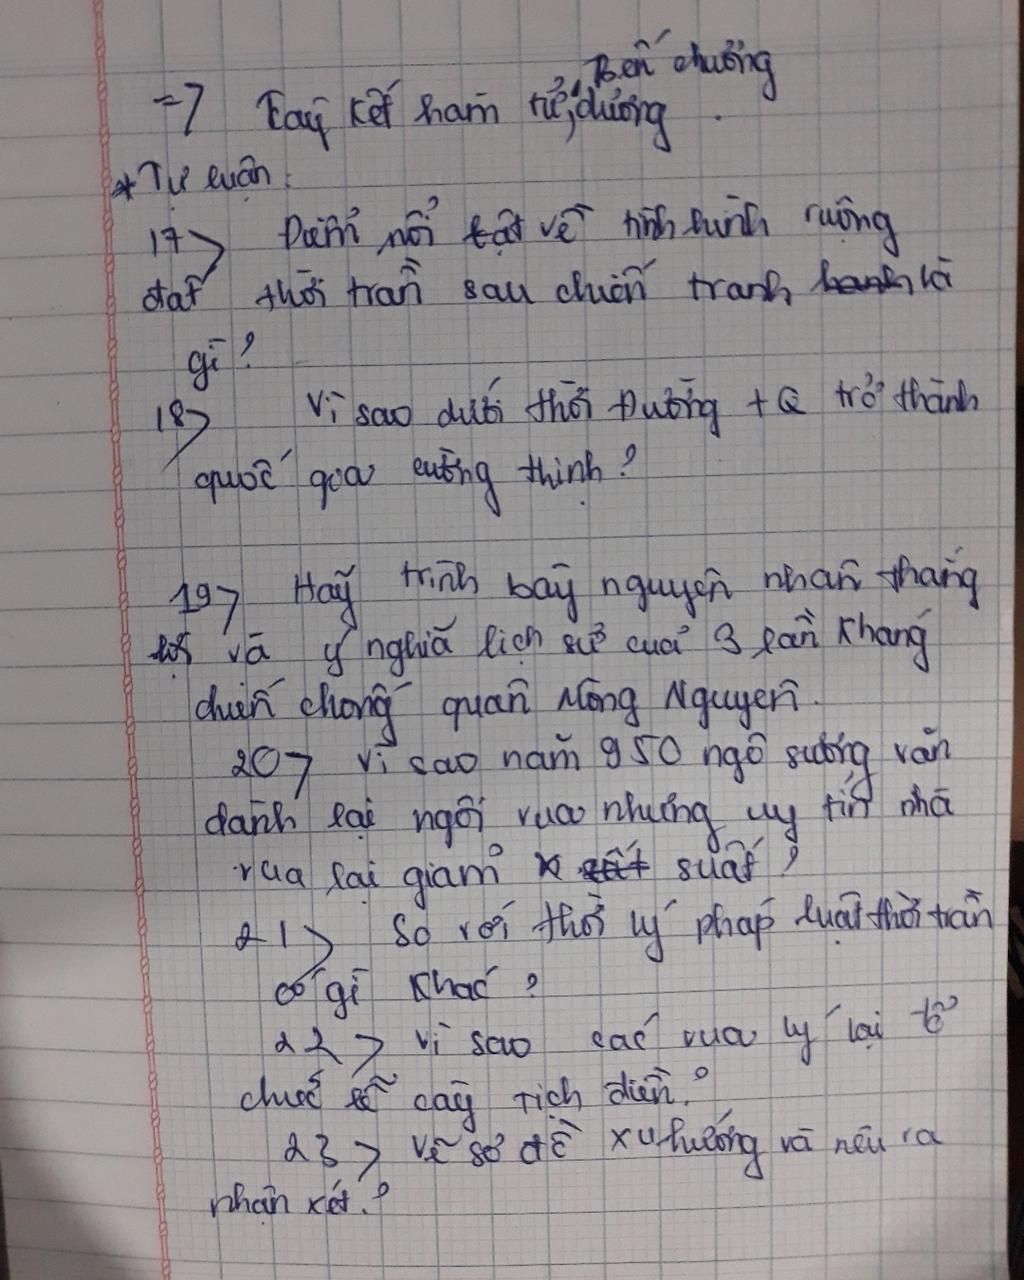 Bến chương
=> Tây Kết hàm tử, dương.
* Tự luận:
17> Điểm nổi bật về tình hình ruộng
đất thời trần sau chiến tranh là
gì?
18> Vì sao dưới thời Đường TQ trở thành
quốc gia cường thịnh?
19> Hãy trình bày nguyên nhân thắng
lợi và ý nghĩa lịch sử của 3 lần kháng
chiến chống quân Mông Nguyên.
20> Vì sao năm 950 ngô sương văn
dành lại ngôi vua nhưng uy tín nhà
vua lại giảm suất?
21> So với thời lý pháp luật thời trần
có gì khác?
22> Vì sao các vua lý lại tổ
chức lễ cày tịch điền?
23> Vẽ sơ đồ và nêu ra
nhận xét?